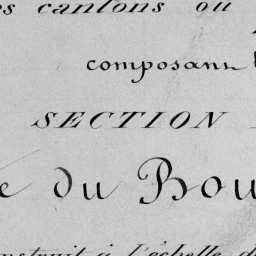 es cantons ou
composant
SECTION
e du Bou
nstruit à l'échelle d